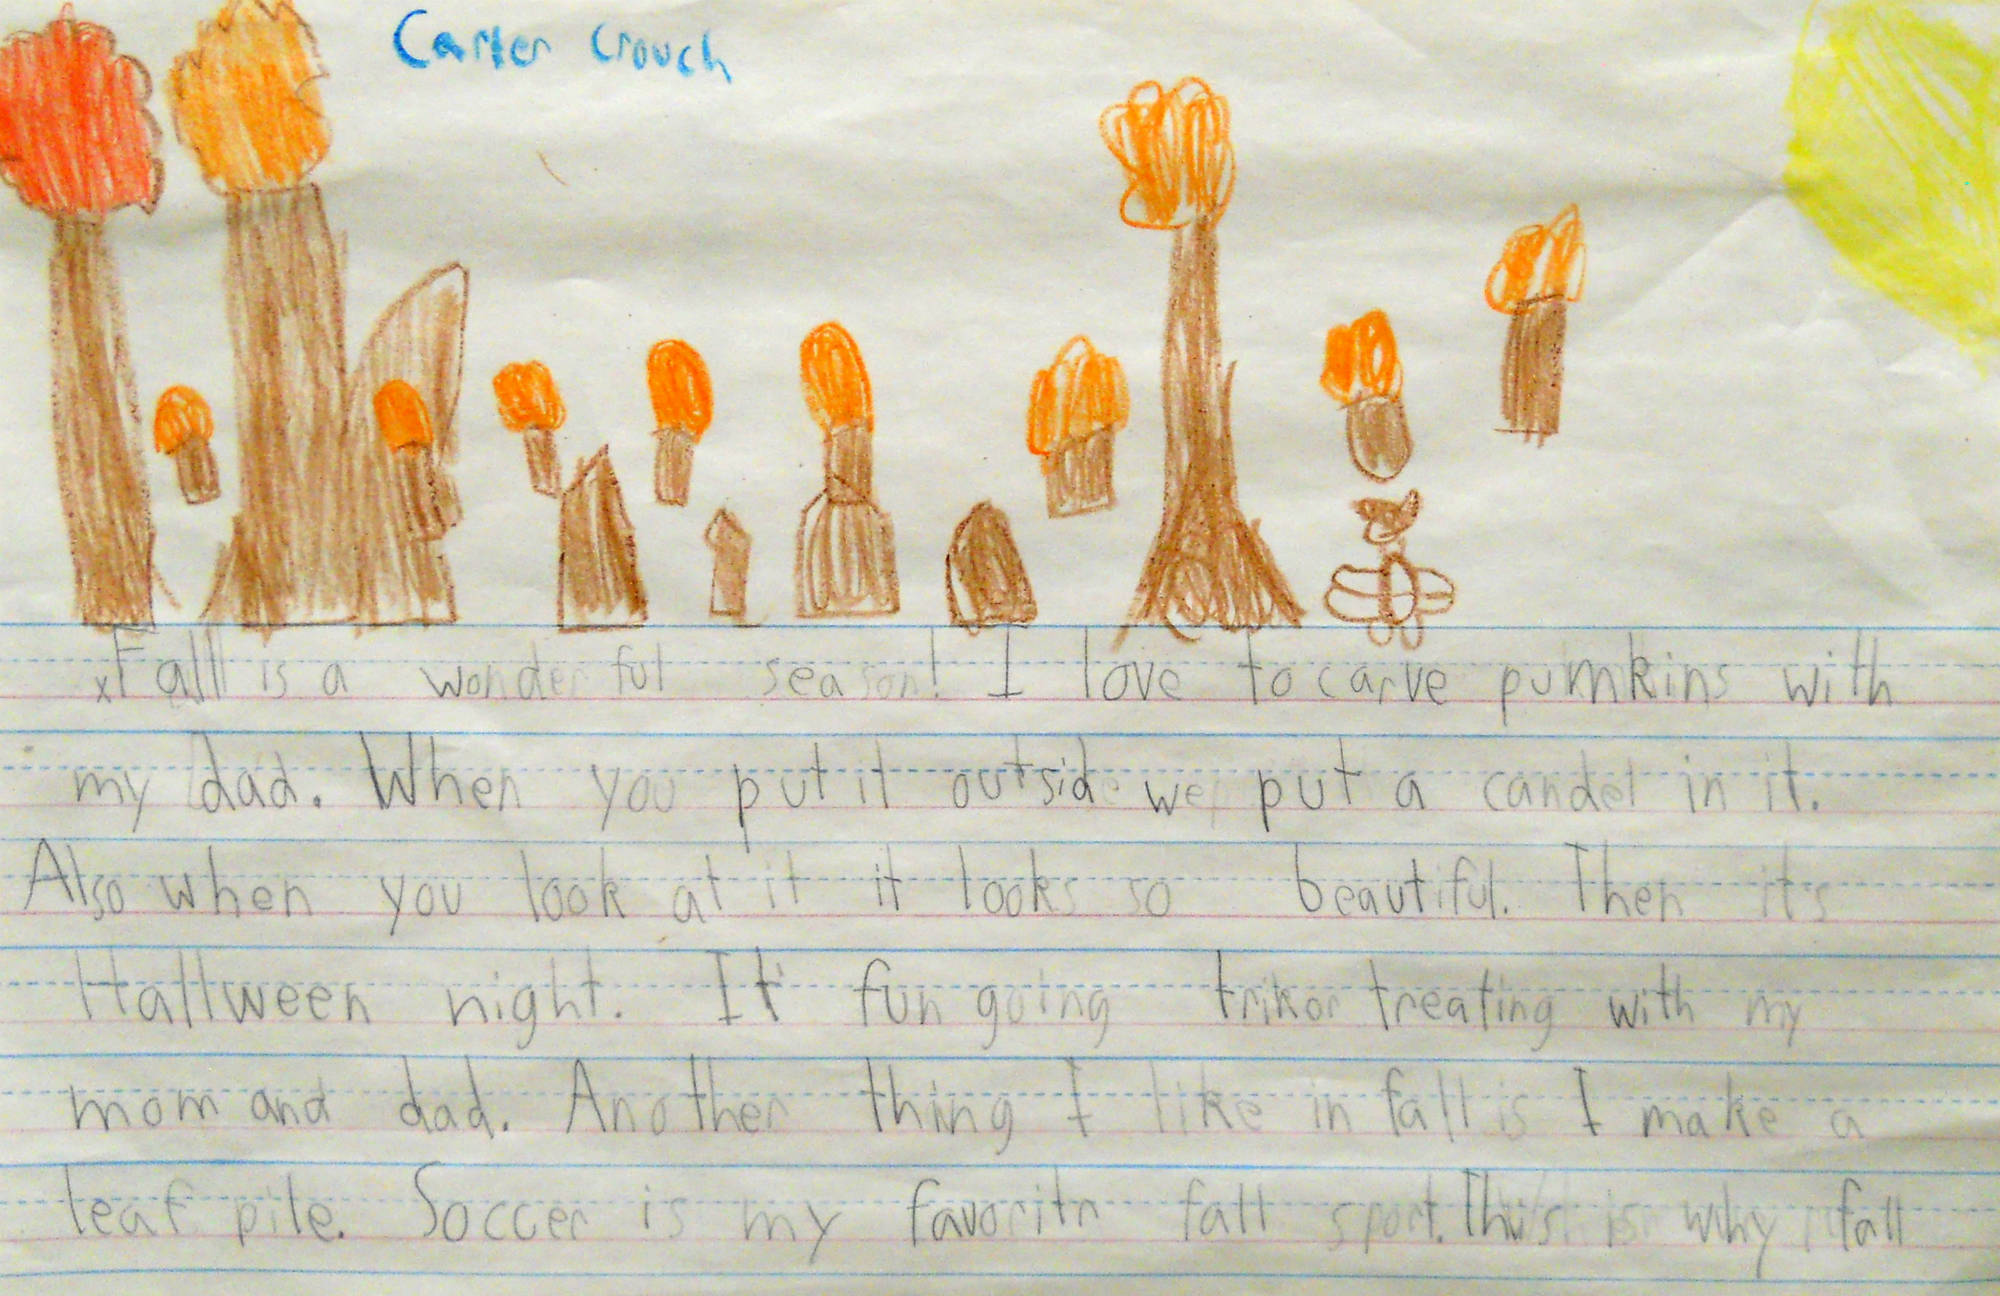 Carter Crouch
Fall is a wonderful season! I love to carve pumkins with
my dad. When you put it outside we put a candel in it.
Also when you look at it it looks so beautiful. Then it's
Hallween night. It' fun going trikor treating with my
mom and dad. Another thing I like in fall is I make a
leaf pile. Soccer is my favoritr fall sport. This is why fall